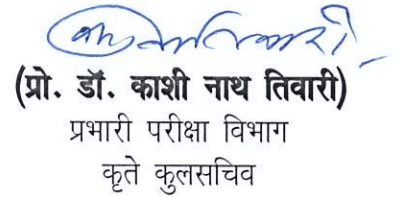 (प्रो. डॉ. काशी नाथ तिवारी)
प्रभारी परीक्षा विभाग
कृते कुलसचिव